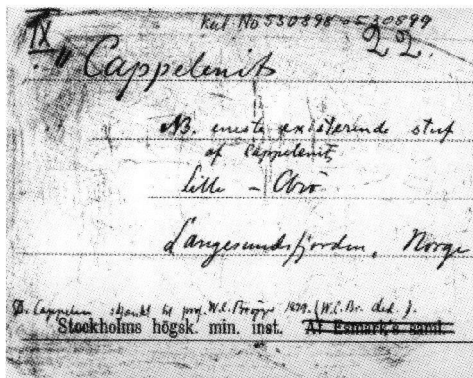 Kat. No 530898-530899
IX 22.
" Cappelenit
NB. eneste existerende stuf
af Cappelenit
Lille - Arö
Langesundsfjorden, Norge
D. Cappelen skänkt til prof. W.C. Brögger 1879. (W.C. Br. ded.).
Stockholms högsk. min. inst. Af Esmark's saml.